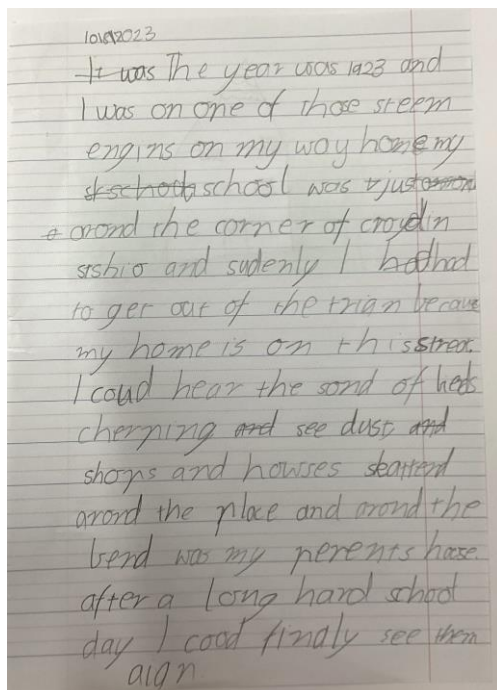 10/10/2023
It was The year was 1923 and
I was on one of those steem
engins on my way home my
school was just
arond the corner of croydin
and sudenly I had
to get out of the trian becaus
my home is on this street.
I coud hear the sond of beds
cherping and see dust, and
shops and howses skatterd
arond the place and arond the
bend was my perents hose.
after a long hard school
day I cood finaly see them
aign